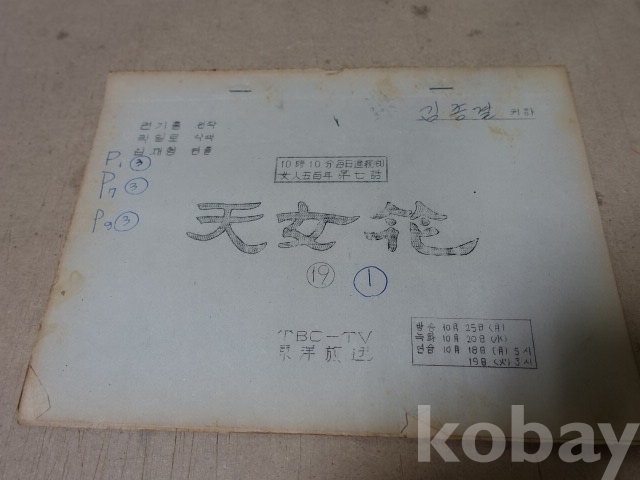 귀하
원작
각색
연출
P₁ ③
P₇ ③
P₉ ③
10時10分每日連続劇
女人五百年 第七話
天女花
⑲ ①
TBC-TV
東洋放送
방송 10月 25日 (月)
녹화 10月 20日 (水)
연습 10月 18日 (月) 5시
19日 (火) 3시
kobay